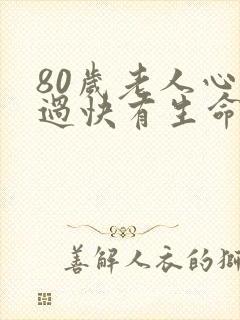 80歲老人心
過快有生命
善解人衣的獅